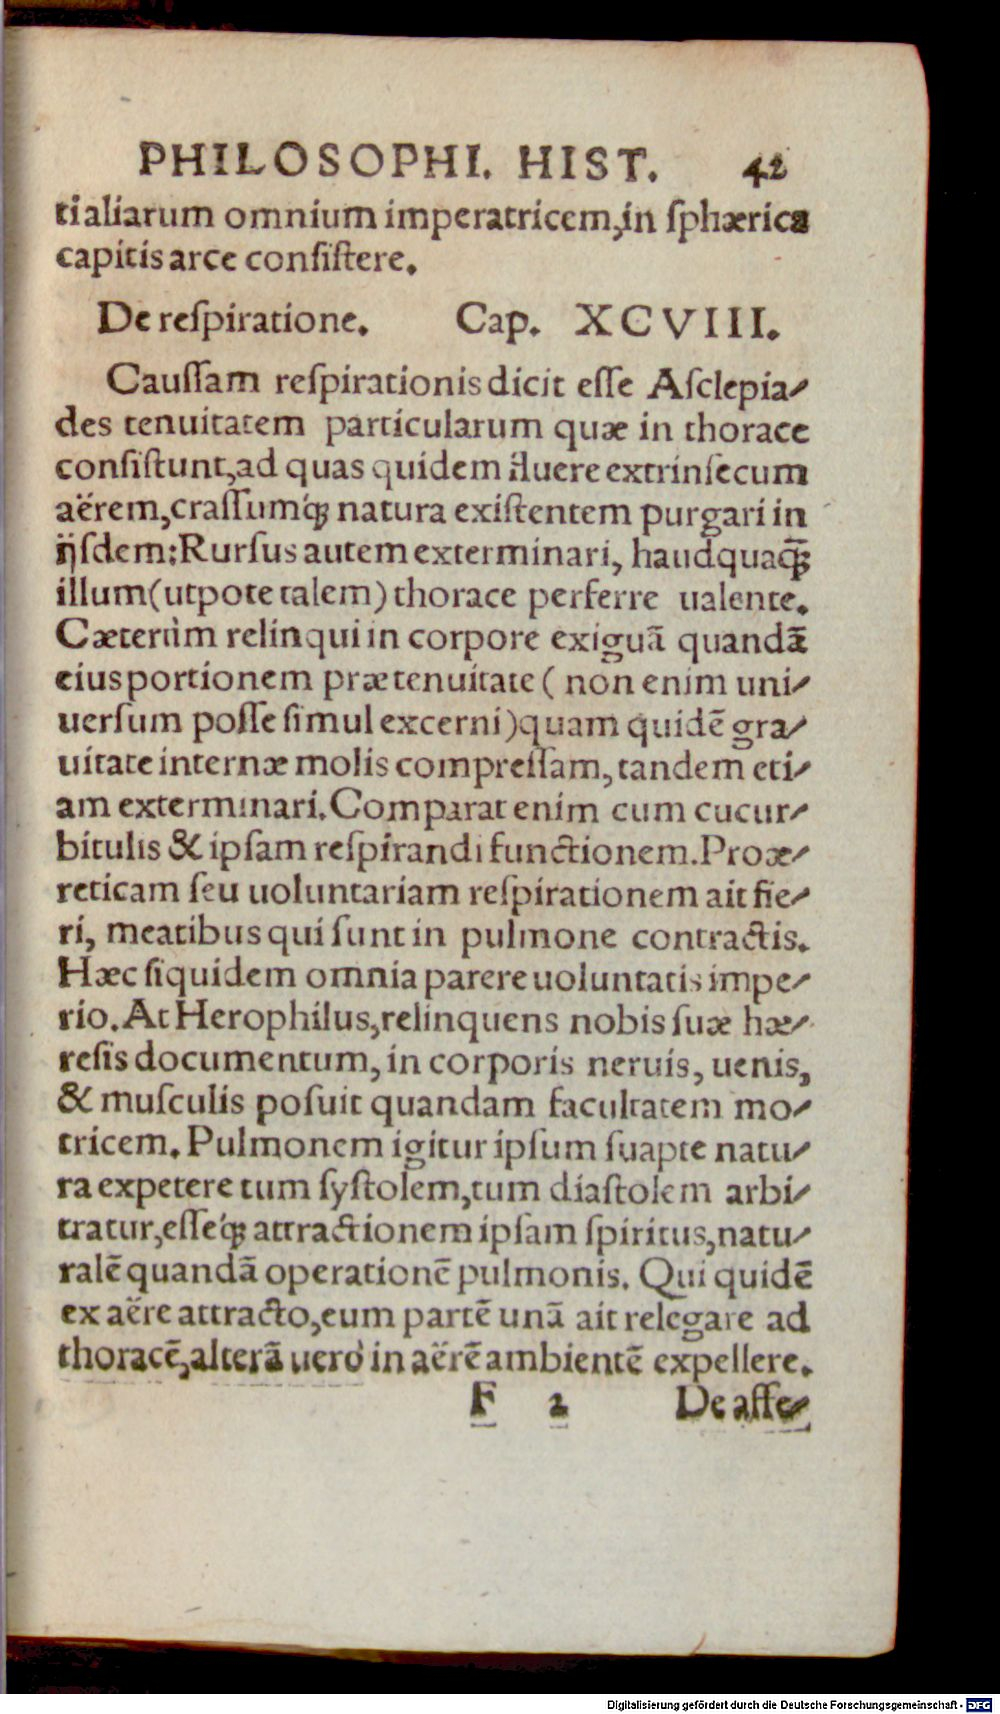 PHILOSOPHI. HIST. 42
tialiarum omnium imperatricem, in ſphærica
capitis arce conſiſtere.
De reſpiratione. Cap. XCVIII.
Cauſſam reſpirationis dicit eſſe Aſclepia⸗
des tenuitatem particularum quæ in thorace
conſiſtunt, ad quas quidem fluere extrinſecum
aërem, craſſumq́ꝫ natura exiſtentem purgari in
ijſdem: Rurſus autem exterminari, haudquaq̃ꝫ
illum (utpote talem) thorace perferre ualente.
Cæterùm relinqui in corpore exiguã quandã
eius portionem præ tenuitate ( non enim uni⸗
uerſum poſſe ſimul excerni) quam quidẽ gra⸗
uitate internæ molis compreſſam, tandem eti⸗
am exterminari. Comparat enim cum cucur⸗
bitulis & ipſam reſpirandi functionem. Proæ⸗
reticam ſeu uoluntariam reſpirationem ait fie⸗
ri, meatibus qui ſunt in pulmone contractis.
Hæc ſiquidem omnia parere uoluntatis impe⸗
rio. At Herophilus, relinquens nobis ſuæ hæ⸗
reſis documentum, in corporis neruis, uenis,
& muſculis poſuit quandam facultatem mo⸗
tricem. Pulmonem igitur ipſum ſuapte natu⸗
ra expetere tum ſyſtolem, tum diaſtolem arbi⸗
tratur, eſſeq́ꝫ attractionem ipſam ſpiritus, natu⸗
ralẽ quandã operationẽ pulmonis. Qui quidẽ
ex aëre attracto, eum partẽ unã ait relegare ad
thoracẽ, alterã uerò in aërẽ ambientẽ expellere.
F 2 De affe⸗
Digitalisierung gefördert durch die Deutsche Forschungsgemeinschaft - DFG